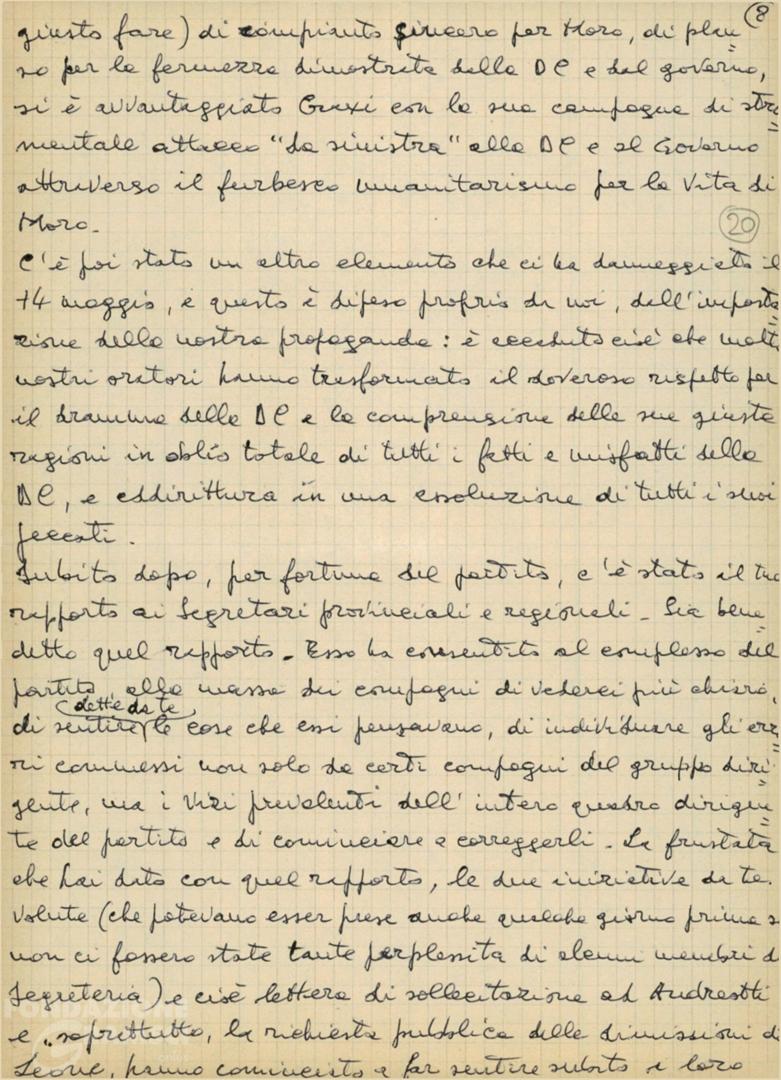 (8
giusto fare) di compianto sincero per Moro, di plau=
so per la fermezza dimostrata dalla DC e dal governo,
si è avvantaggiato Craxi con la sua campagna di stru=
mentale attacco "da sinistra" alla DC e al Governo
attraverso il furbesco umanitarismo per la vita di
Moro.
20
C'è poi stato un altro elemento che ci ha danneggiato il
14 maggio, e questo è dipeso proprio da noi, dall'imposta=
zione della nostra propaganda: è accaduto cioè che molti
nostri oratori hanno trasformato il doveroso rispetto per
il dramma della DC e la comprensione delle sue giuste
ragioni in oblio totale di tutti i fatti e misfatti della
DC, e addirittura in una assoluzione di tutti i suoi
peccati.
Subito dopo, per fortuna del partito, c'è stato il tuo
rapporto ai Segretari provinciali e regionali. Sia bene=
detto quel rapporto. Esso ha consentito al complesso del
partito, alla massa dei compagni di vederci più chiaro,
dette da te
di sentire le cose che essi pensavano, di individuare gli erro=
ri commessi non solo da certi compagni del gruppo diri=
gente, ma i vizi prevalenti dell'intero quadro dirigen=
te del partito e di cominciare a correggerli. La frustata
che hai dato con quel rapporto, le due iniziative da te
volute (che potevano esser prese anche qualche giorno prima s
non ci fossero state tante perplessità di alcuni membri d
Segreteria) e cioè lettera di sollecitazione ad Andreotti
e, soprattutto, la richiesta pubblica delle dimissioni di
Leone, hanno cominciato a far sentire subito i loro
FONDAZIONE
online